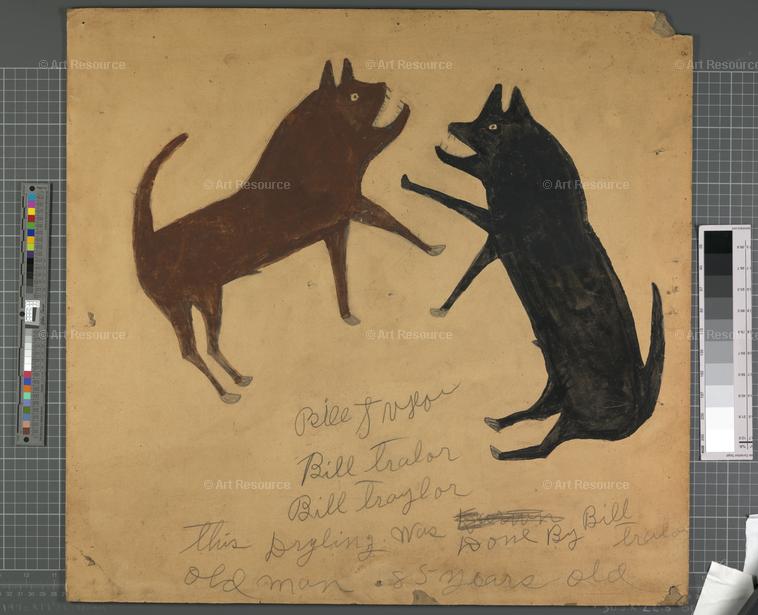 © Art Resource © Art Resource © Art Resource
© Art Resource © Art Resource © Art Resource
© Art Resource © Art Resource © Art Resource
Bill
Bill Tralor
Bill Traylor
© Art Resource © Art Resource © Art Resource
this Was Done By Bill
Old man 85 years old